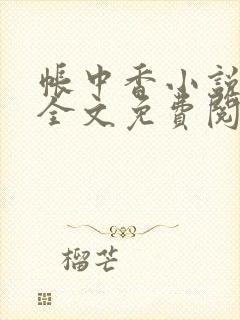 帳中香小說
全文免費閱
榴芒